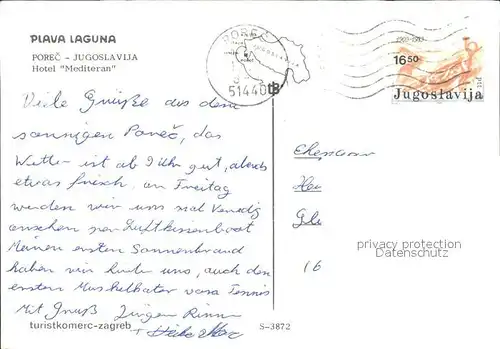 PLAVA LAGUNA
POREČ - JUGOSLAVIJA
Hotel "Mediteran"
POREČ
51440
1983
16.50
ptt
Jugoslavija
Viele Grüße aus dem
sonnigen Poreč, das
Wetter ist ab 9 Uhr gut, abends
etwas frisch, am Freitag
werden wir uns mal Venedig
ansehen per Luftkissenboot
Meinen ersten Sonnenbrand
haben wir heute uns, auch den
ersten Muskelkater vom Tennis
Mit Gruß Jürgen
+
Ehepaar
privacy protection
Datenschutz
16
turistkomerc-zagreb
S-3872